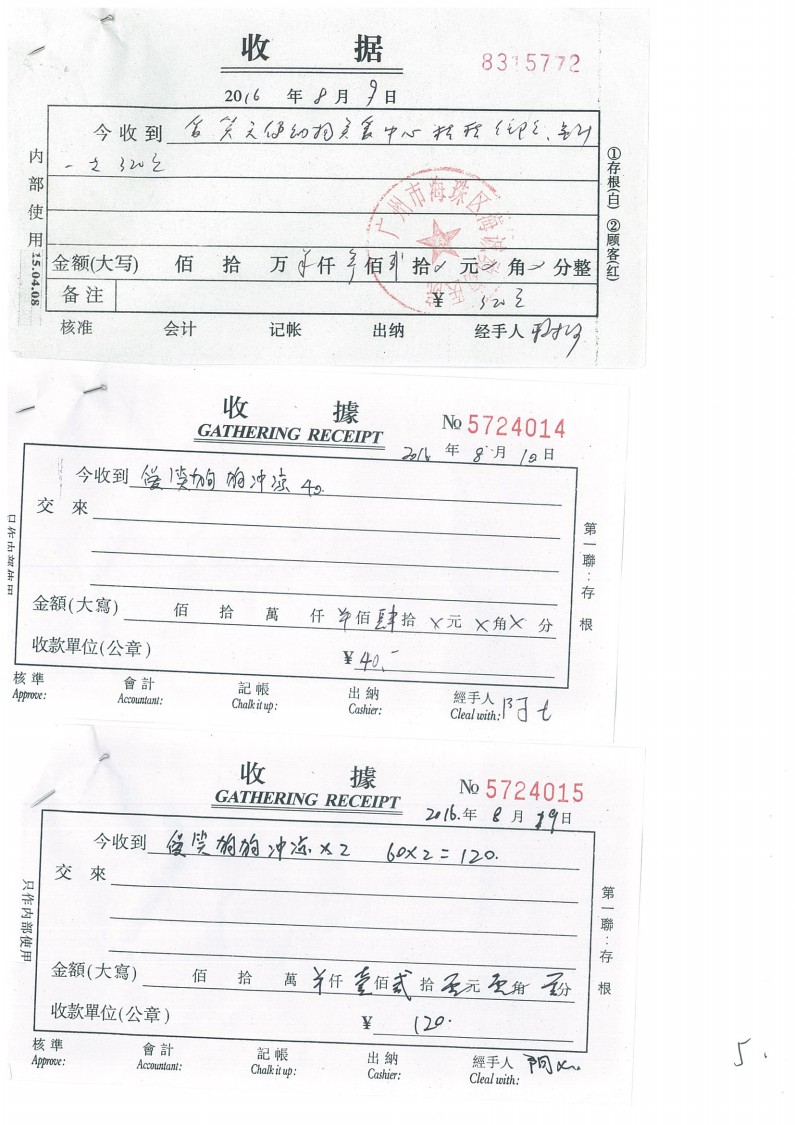 收 据
8315772
2016 年 8 月 9 日
今收到
320元
内部使用
15.04.08
①存根(白) ②顾客(红)
广州市海珠区
金额(大写) 佰 拾 万 仟 佰 拾 元 角 分整
备注 ¥ 320元
核准 会计 记帐 出纳 经手人
收 據
GATHERING RECEIPT
No 5724014
2016 年 8 月 10 日
今收到 狗狗冲凉 40.
交 來
第一聯：存根
金額(大寫) 佰 拾 萬 仟 佰 肆 拾 X 元 X 角 X 分
收款單位(公章) ¥ 40.-
核準 會計 記帳 出納 經手人
Approve: Accountant: Chalk it up: Cashier: Cleal with:
收 據
GATHERING RECEIPT
No 5724015
2016. 年 8 月 19 日
今收到 狗狗冲凉 x 2 60x2=120.
交 來
只作内部使用
第一聯：存根
金額(大寫) 佰 拾 萬 仟 壹 佰 贰 拾 元 角 分
收款單位(公章) ¥ 120.
核準 會計 記帳 出納 經手人
Approve: Accountant: Chalk it up: Cashier: Cleal with:
5.